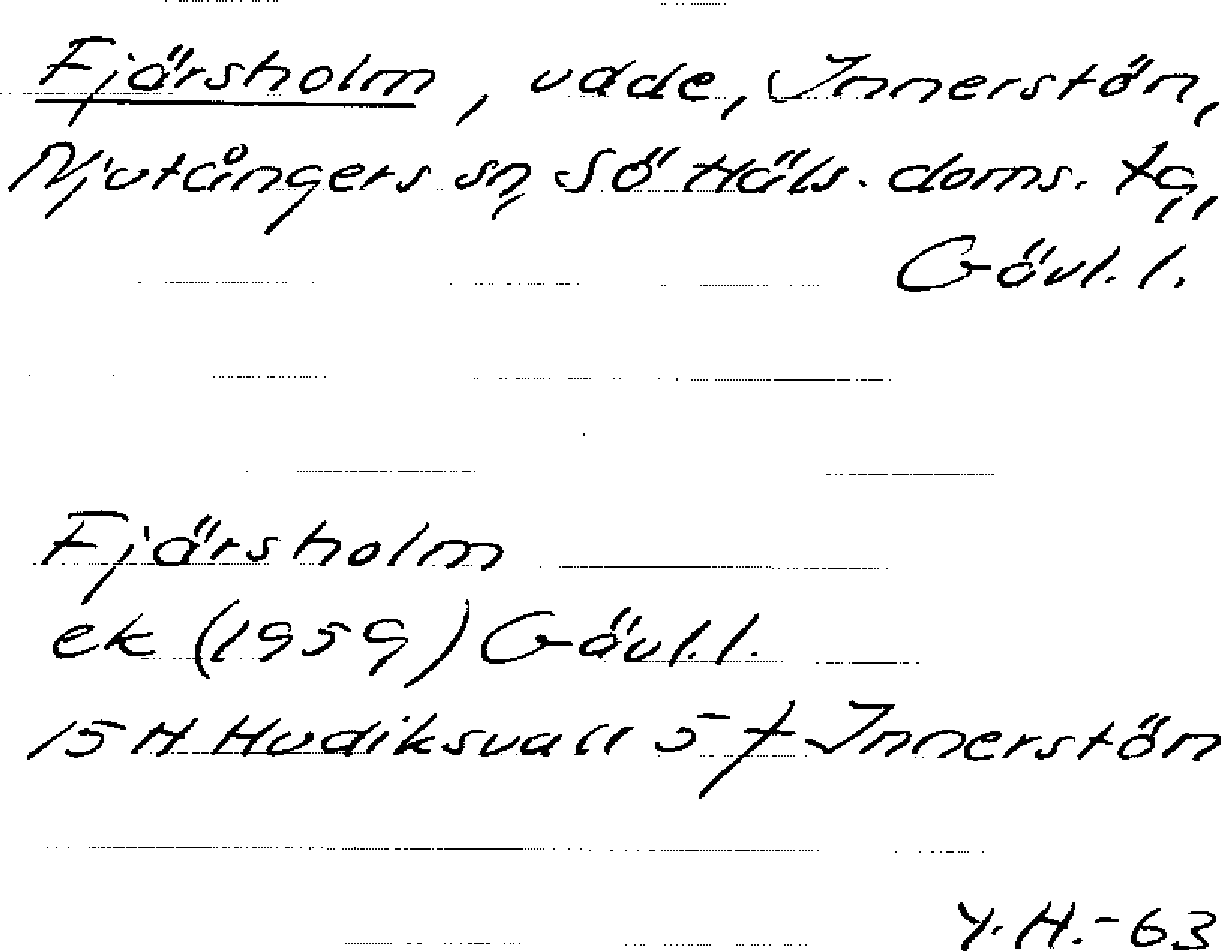 Fjärsholm, udde, Innerstön,
Njutångers sn, Sö Häls. doms. tg,
Gävl. l.
Fjärsholm
ek (1959) Gävl. l.
15 H Hudiksvall 5 f Innerstön
Y. H. - 63